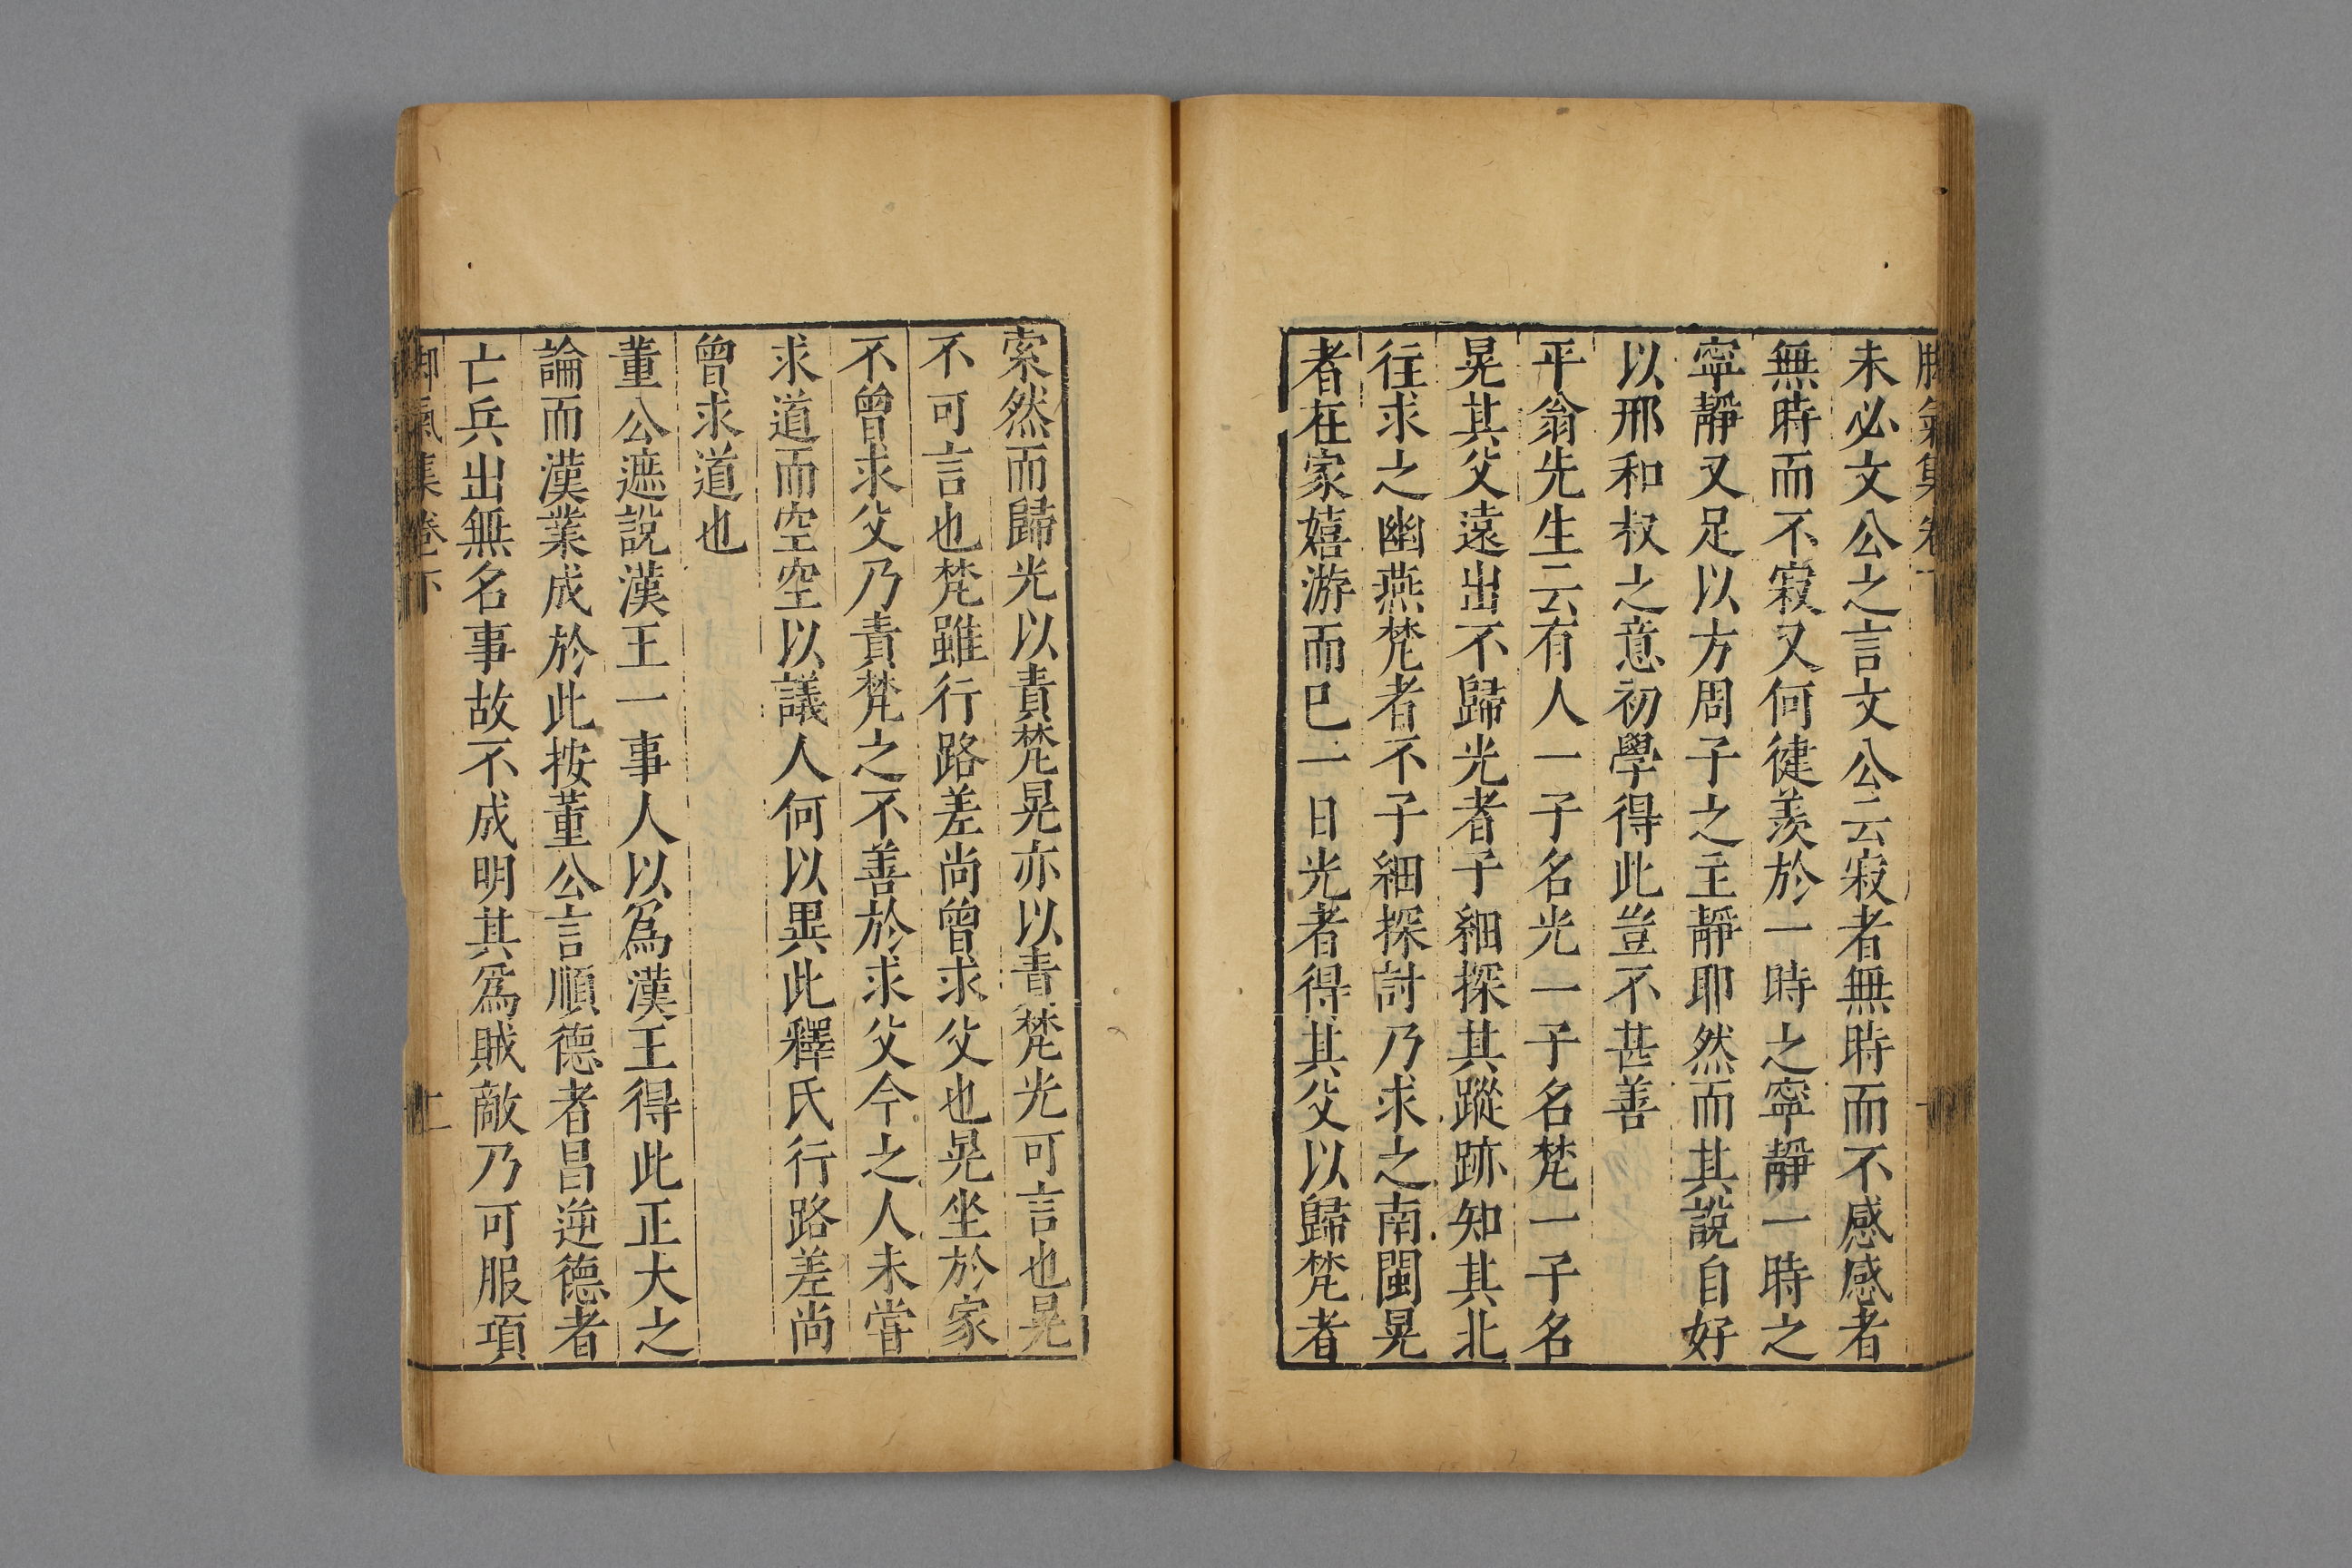 脚氣集卷下
未必文公之言文公云寂者無時而不感感者
無時而不寂又何健羨於一時之寧靜一時之
寧靜又足以方周子之主靜耶然而其說自好
以邢和叔之意初學得此豈不甚善
平翁先生云有人一子名光一子名梵一子名
晃其父遠出不歸光者子細探其蹤跡知其北
往求之幽燕梵者不子細探討乃求之南閩晃
者在家嬉游而已一日光者得其父以歸梵者
索然而歸光以責梵晃亦以責梵光可言也晃
不可言也梵雖行路差尚曾求父也晃坐於家
不曾求父乃責梵之不善於求父今之人未嘗
求道而空空以議人何以異此釋氏行路差尚
曾求道也
董公遮說漢王一事人以爲漢王得此正大之
論而漢業成於此按董公言順德者昌逆德者
亡兵出無名事故不成明其爲賊敵乃可服項
脚氣集卷下